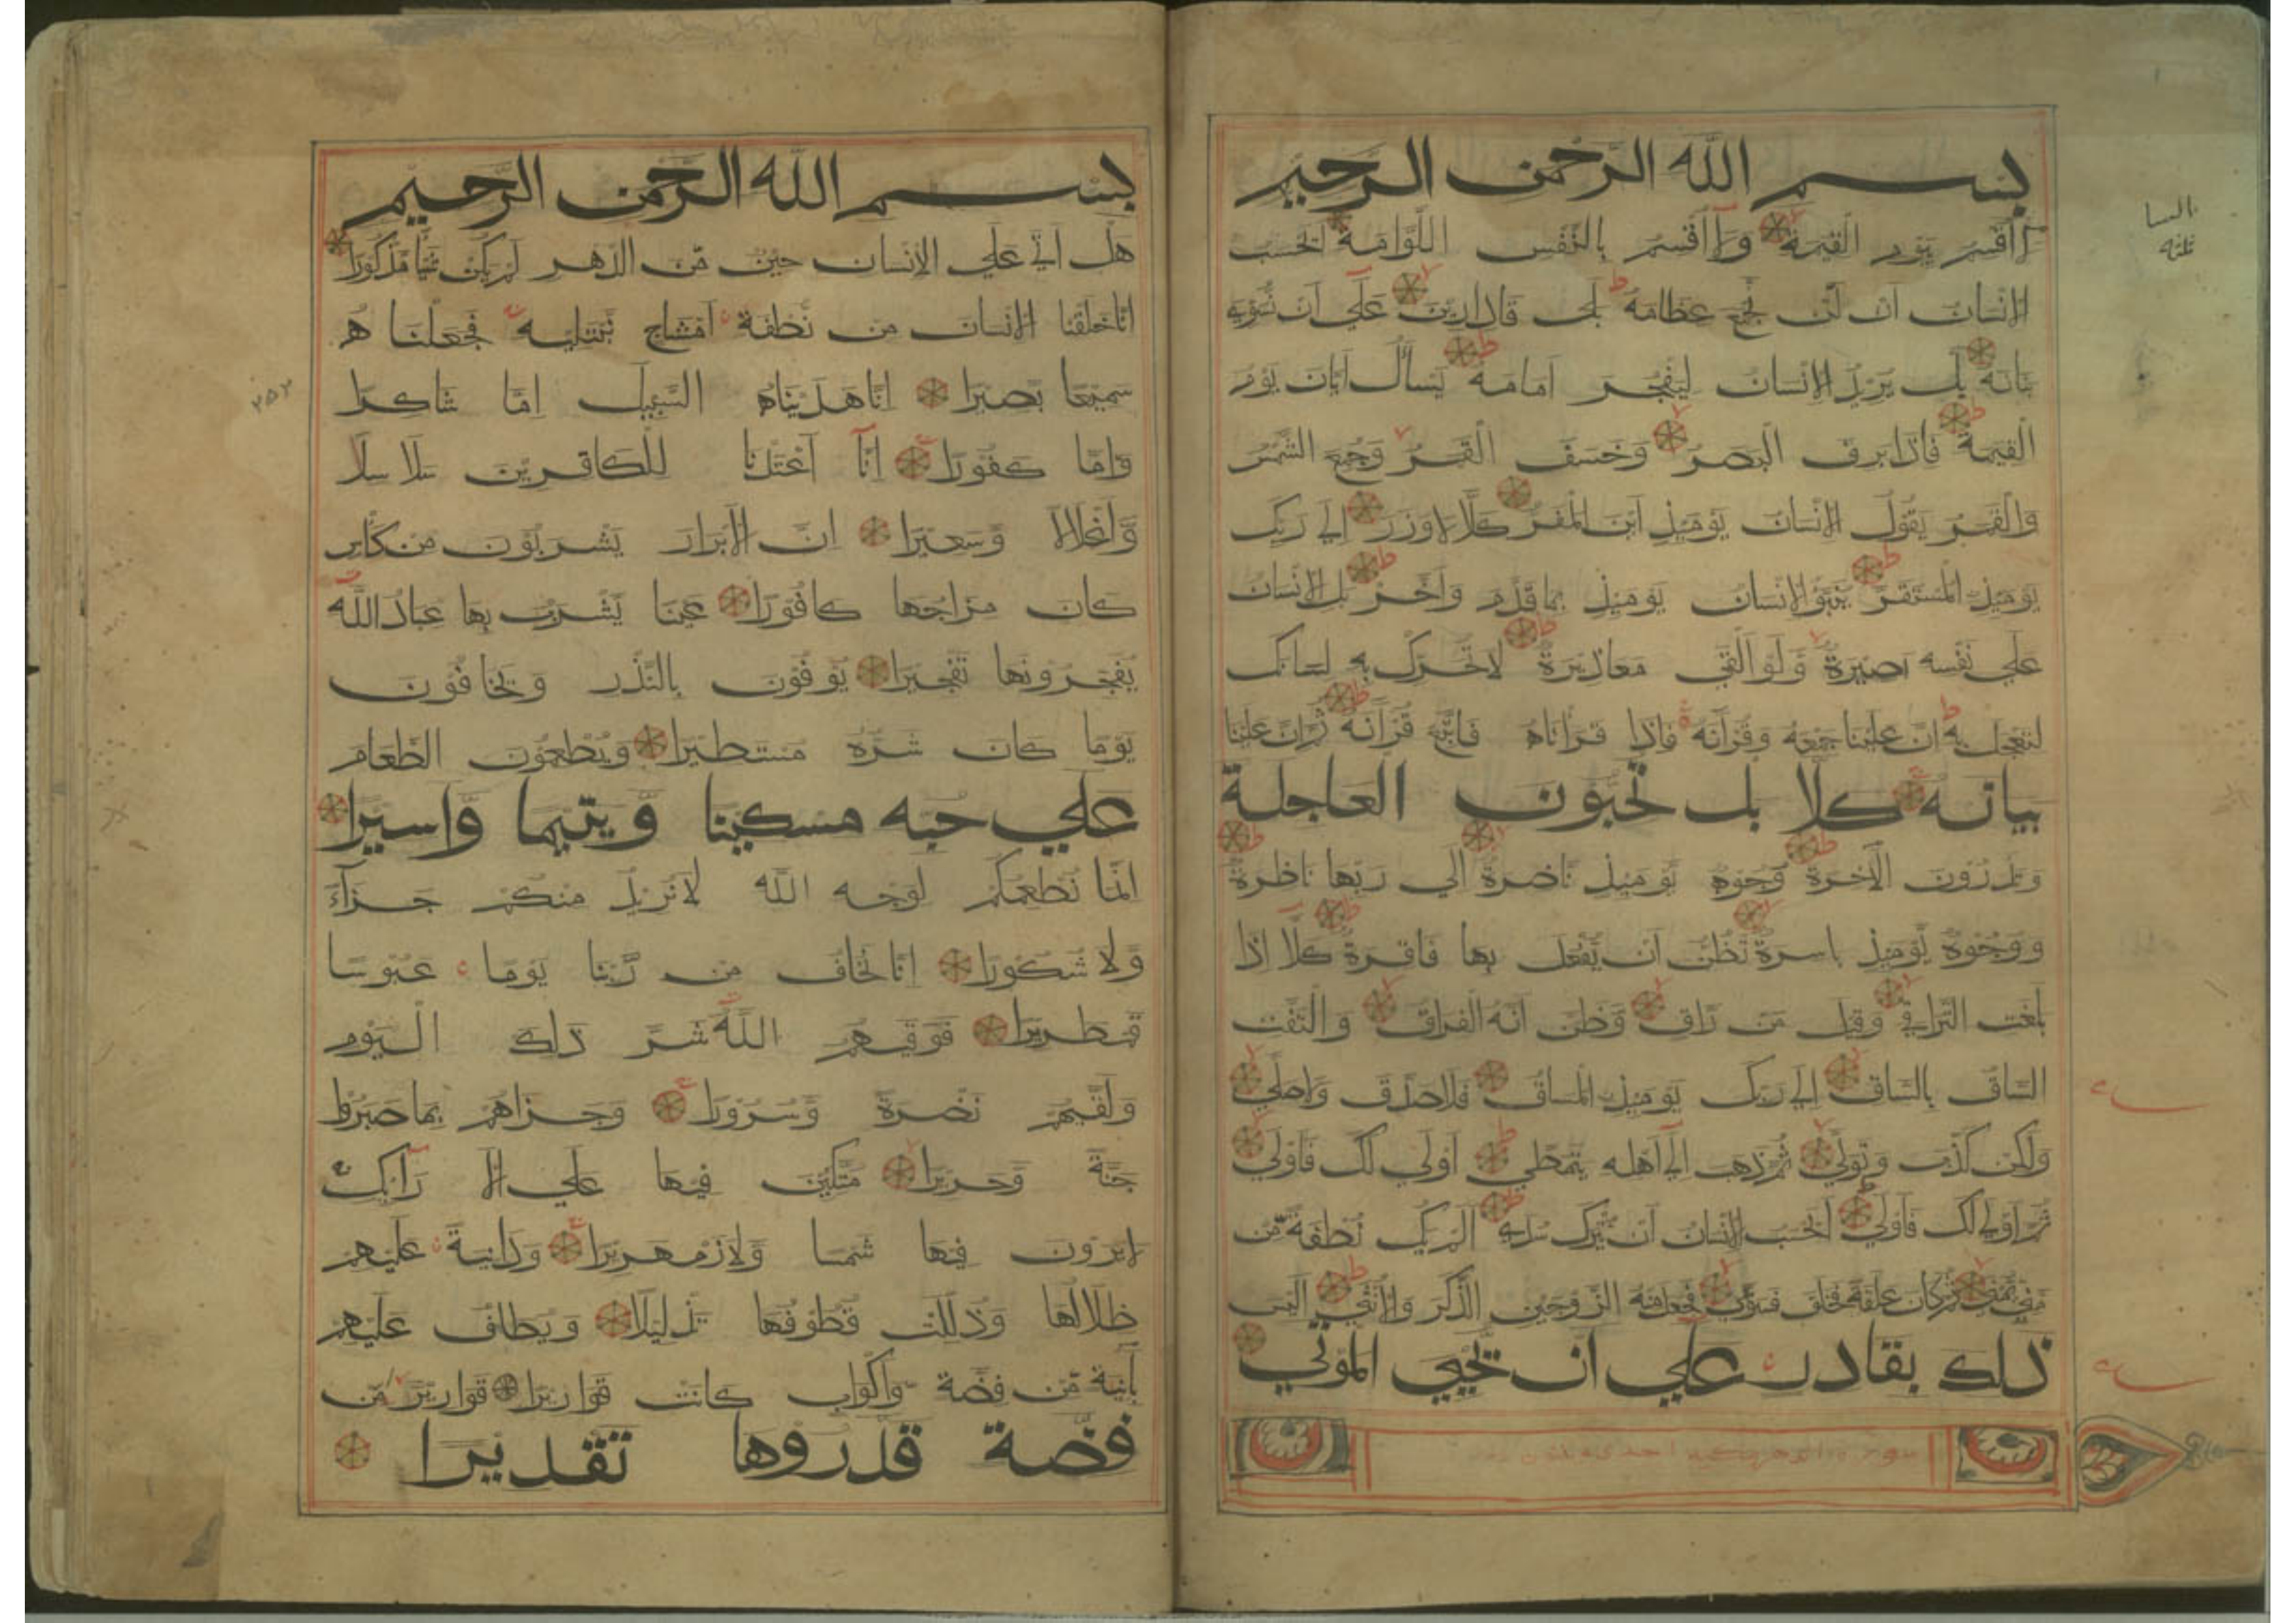 بسم الله الرحمن الرحيم
لا أقسم بيوم القيمة ولا أقسم بالنفس اللوامة ايحسب
الإنسان ان لن نجمع عظامه بلى قادرين على ان نسوي
بنانه بل يريد الإنسان ليفجر امامه يسأل ايان يوم
القيمة فاذا برق البصر وخسف القمر وجمع الشمس
والقمر يقول الإنسان يومئذ اين المفر كلا لا وزر إلى ربك
يومئذ المستقر ينبؤ الإنسان يومئذ بما قدم وأخر بل الإنسان
على نفسه بصيرة ولو القى معاذيره لا تحرك به لسانك
لتعجل به ان علينا جمعه وقرآنه فاذا قرأناه فاتبع قرآنه ثم ان علينا
بيانه كلا بل تحبون العاجلة
وتذرون الآخرة وجوه يومئذ ناضرة الى ربها ناظرة
ووجوه يومئذ باسرة تظن ان يفعل بها فاقرة كلا اذا
بلغت التراقي وقيل من راق وظن انه الفراق والتفت
الساق بالساق الى ربك يومئذ المساق فلا صدق ولا صلى
ولكن كذب وتولى ثم ذهب الى اهله يتمطى اولى لك فاولى
ثم اولى لك فاولى ايحسب الانسان ان يترك سدى الم يك نطفة من
مني يمنى ثم كان علقة فخلق فسوى فجعل منه الزوجين الذكر والانثى اليس
ذلك بقادر على ان يحيي الموتى
بسم الله الرحمن الرحيم
هل اتى على الإنسان حين من الدهر لم يكن شيئا مذكورا
انا خلقنا الإنسان من نطفة امشاج نبتليه فجعلنا ه
سميعا بصيرا انا هديناه السبيل اما شاكرا
واما كفورا انا اعتدنا للكافرين سلاسلا
واغلالا وسعيرا ان الأبرار يشربون من كأس
كان مزاجها كافورا عينا يشرب بها عباد الله
يفجرونها تفجيرا يوفون بالنذر ويخافون
يوما كان شره مستطيرا ويطعمون الطعام
على حبه مسكينا ويتيما واسيرا
انما نطعمكم لوجه الله لا نريد منكم جزآء
ولا شكورا انا نخاف من ربنا يوما عبوسا
قمطريرا فوقيهم الله شر ذلك اليوم
ولقيهم نضرة وسرورا وجزاهم بما صبروا
جنة وحريرا متكئين فيها على الا رآئك
لا يرون فيها شمسا ولا زمهريرا ودانية عليهم
ظلالها وذللت قطوفها تذليلا ويطاف عليهم
بآنية من فضة واكواب كانت قواريرا قوارير من
فضة قدروها تقديرا
٢٥٢